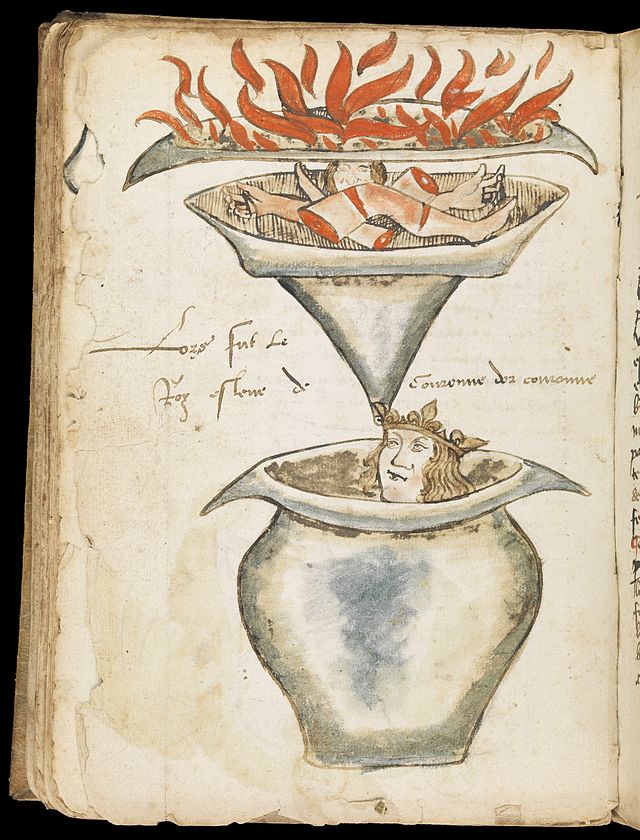 Lors fut le
Roy esleue de couronne dor couronne